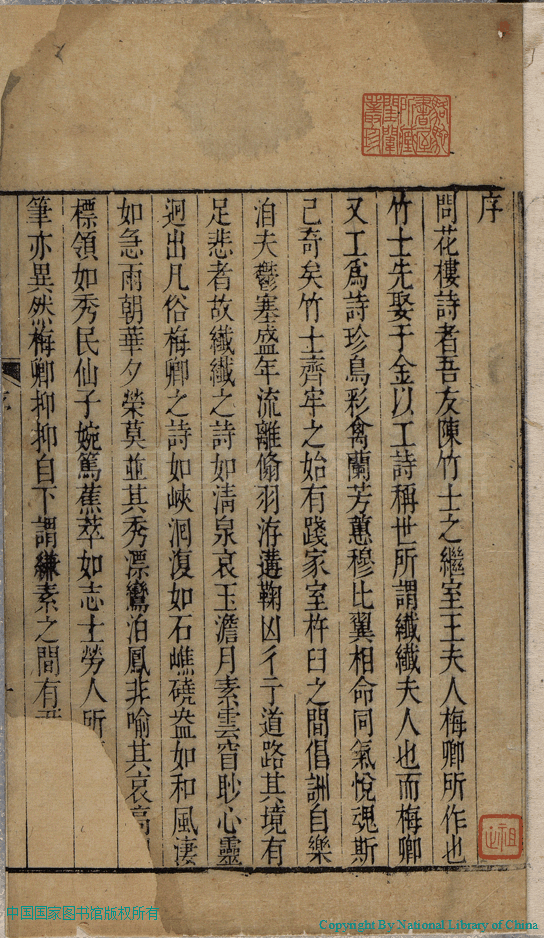 序
問花樓詩者吾友陳竹士之繼室王夫人梅卿所作也
竹士先娶于金以工詩稱世所謂纖纖夫人也而梅卿
又工爲詩珍鳥彩禽蘭芳蕙穆比翼相命同氣悅魂斯
己奇矣竹士齊牢之始有踐家室杵臼之間倡詶自樂
洎夫鬱塞盛年流離翛羽洊遘鞠凶彳亍道路其境有
足悲者故纖纖之詩如淸泉哀玉澹月素雲窅眇心靈
迥出凡俗梅卿之詩如峽洞復如石嶕磽盎如和風淒
如急雨朝華夕榮莫並其秀漂鸞泊鳳非喻其哀高
標領如秀民仙子婉篤蕉萃如志士勞人所
筆亦異然梅卿抑抑自下謂縑素之間有
中国国家图书馆版权所有
Copyright By National Library of China